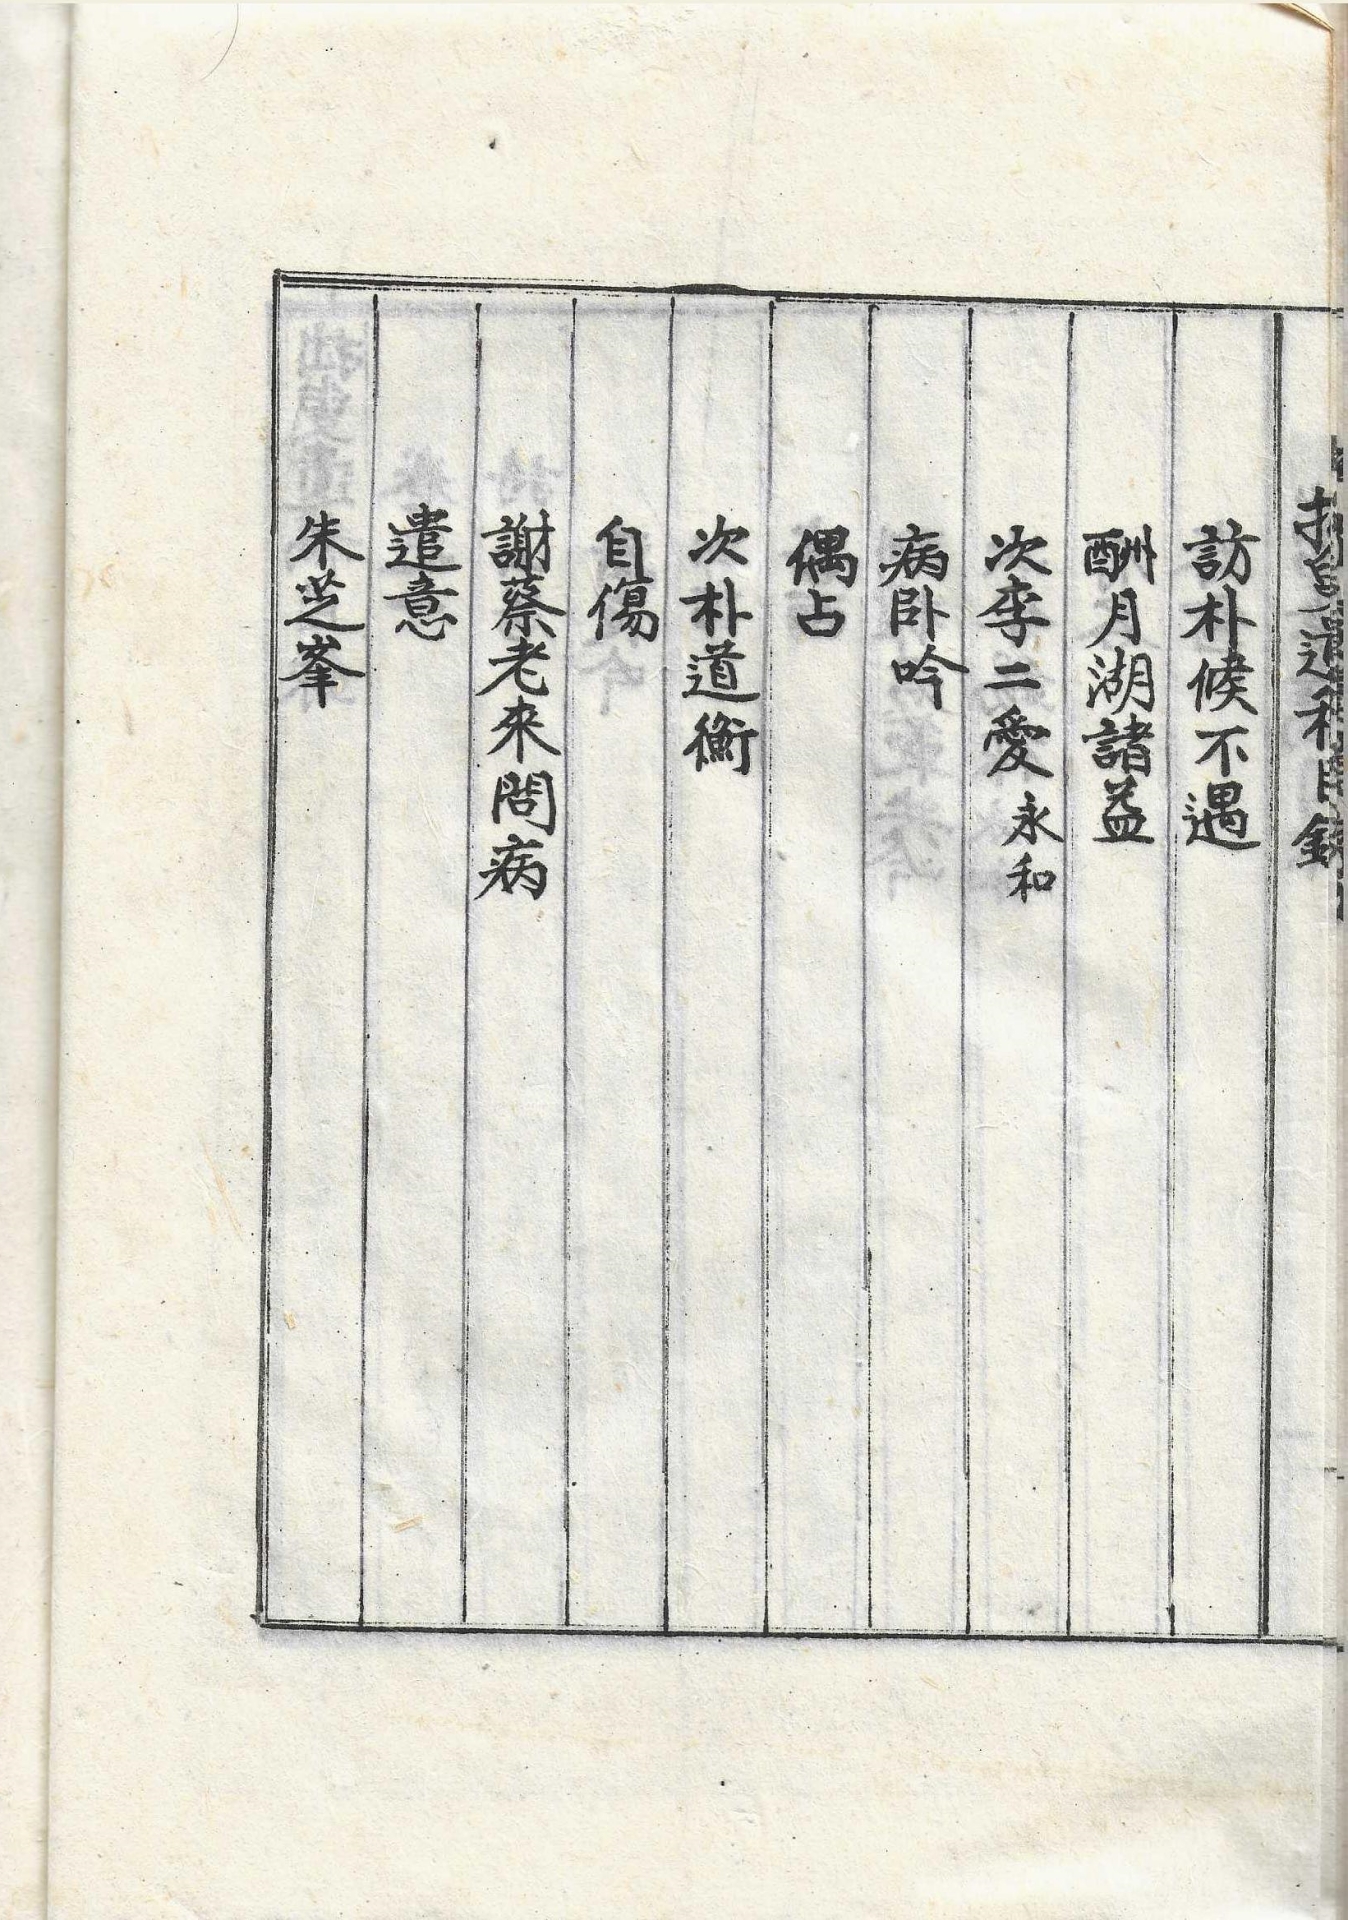 訪朴候不遇
酬月湖諸益
次李二愛永和
病卧吟
偶占
次朴道衡
自傷
謝蔡老來問病
遣意
朱芝峯